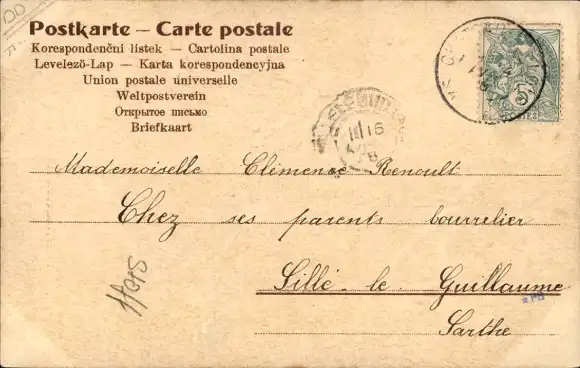 DD
Postkarte – Carte postale
Korespondenční lístek – Cartolina postale
Levelezö-Lap – Karta korespondencyjna
Union postale universelle
Weltpostverein
Открытое письмо
Briefkaart
16
POSTES
Mademoiselle Clémence Renoult
Chez ses parents bourrelier
Sillé-le-Guillaume
Sarthe
*PB